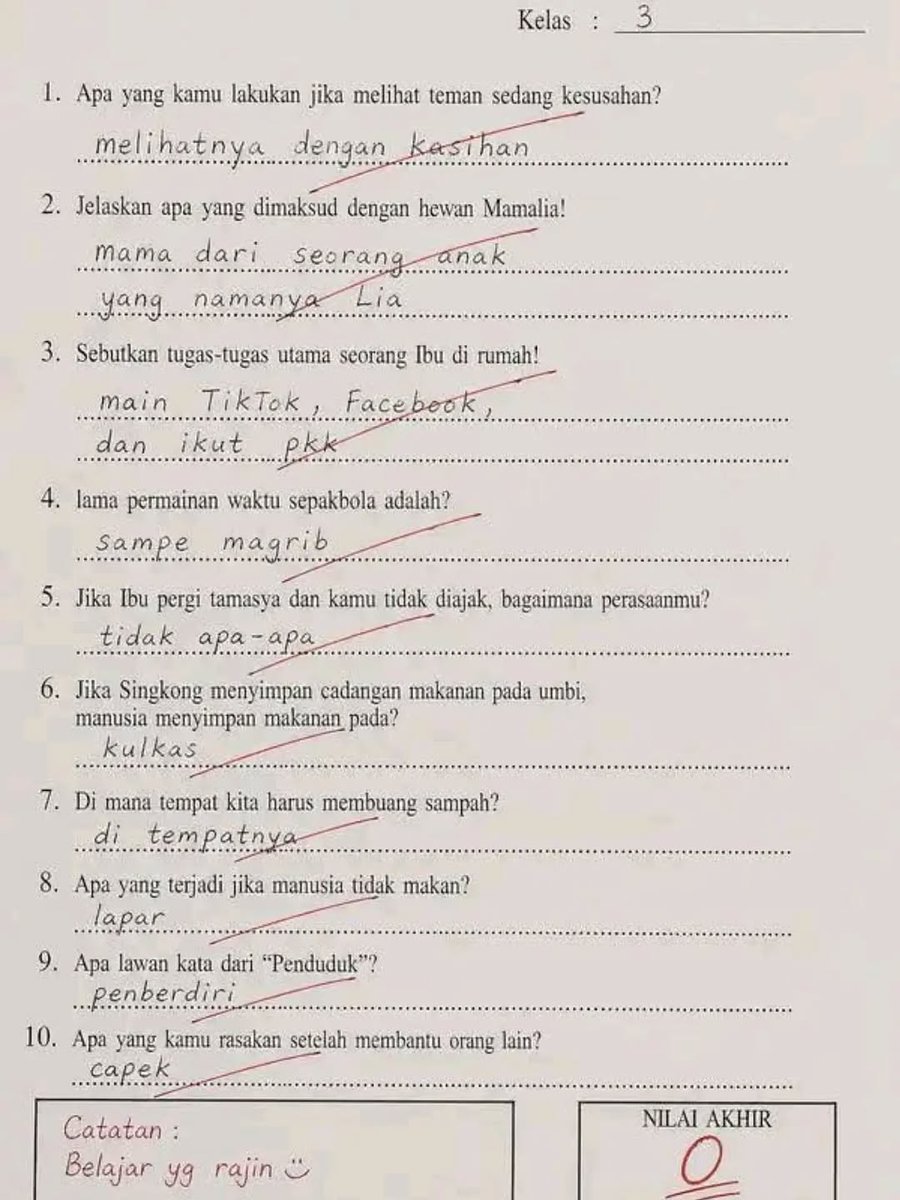 Kelas : 3
1. Apa yang kamu lakukan jika melihat teman sedang kesusahan?
melihatnya dengan kasihan
2. Jelaskan apa yang dimaksud dengan hewan Mamalia!
mama dari seorang anak
yang namanya Lia
3. Sebutkan tugas-tugas utama seorang Ibu di rumah!
main TikTok, Facebook,
dan ikut pkk
4. lama permainan waktu sepakbola adalah?
sampe magrib
5. Jika Ibu pergi tamasya dan kamu tidak diajak, bagaimana perasaanmu?
tidak apa-apa
6. Jika Singkong menyimpan cadangan makanan pada umbi,
manusia menyimpan makanan pada?
kulkas
7. Di mana tempat kita harus membuang sampah?
di tempatnya
8. Apa yang terjadi jika manusia tidak makan?
lapar
9. Apa lawan kata dari “Penduduk”?
penberdiri
10. Apa yang kamu rasakan setelah membantu orang lain?
capek
Catatan :
Belajar yg rajin
NILAI AKHIR
0